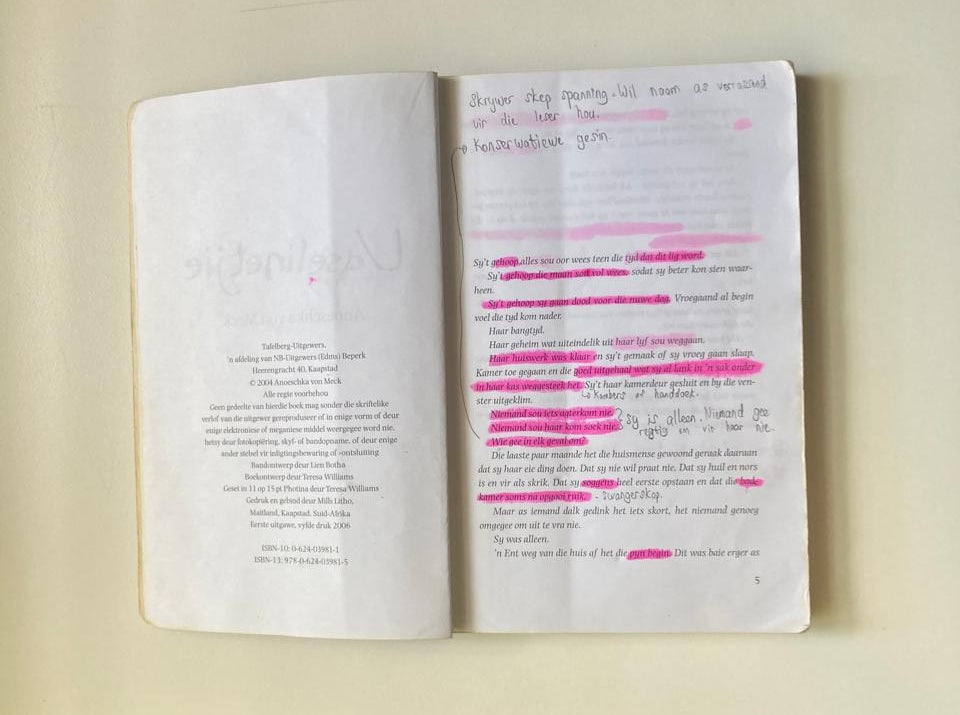 Vaselinetjie
Anoeschka von Meck
Tafelberg-Uitgewers,
'n afdeling van NB-Uitgewers (Edms) Beperk
Heerengracht 40, Kaapstad
© 2004 Anoeschka von Meck
Alle regte voorbehou
Geen gedeelte van hierdie boek mag sonder die skriftelike
verlof van die uitgewer gereproduseer of in enige vorm of deur
enige elektroniese of meganiese middel weergegee word nie,
hetsy deur fotokopiëring, skyf- of bandopname, of deur enige
ander stelsel vir inligtingsbewaring of -ontsluiting
Bandontwerp deur Lien Botha
Boekontwerp deur Teresa Williams
Geset in 11 op 15 pt Photina deur Teresa Williams
Gedruk en gebind deur Mills Litho,
Maitland, Kaapstad, Suid-Afrika
Eerste uitgawe, vyfde druk 2006
ISBN-10: 0-624-03981-1
ISBN-13: 978-0-624-03981-5
Skrywer skep spanning. Wil naam as verrassing
vir die leser hou.
Konserwatiewe gesin.
Sy't gehoop alles sou oor wees teen die tyd dat dit lig word.
Sy't gehoop die maan sou vol wees, sodat sy beter kon sien waar-
heen.
Sy't gehoop sy gaan dood voor die nuwe dag. Vroegaand al begin
voel die tyd kom nader.
Haar bangtyd.
Haar geheim wat uiteindelik uit haar lyf sou weggaan.
Haar huiswerk was klaar en sy't gemaak of sy vroeg gaan slaap.
Kamer toe gegaan en die goed uitgehaal wat sy al lank in 'n sak onder
in haar kas weggesteek het. Sy't haar kamerdeur gesluit en by die ven-
ster uitgeklim.
Kombers of handdoek.
Niemand sou iets agterkom nie.
Niemand sou haar kom soek nie.
Wie gee in elk geval om?
Sy is alleen. Niemand gee
regtig om vir haar nie.
Die laaste paar maande het die huismense gewoond geraak daaraan
dat sy haar eie ding doen. Dat sy nie wil praat nie. Dat sy huil en nors
is en vir als skrik. Dat sy soggens heel eerste opstaan en dat die bad-
kamer soms na opgooi ruik. - Swangerskap.
Maar as iemand dalk gedink het iets skort, het niemand genoeg
omgegee om uit te vra nie.
Sy was alleen.
'n Ent weg van die huis af het die pyn begin. Dit was baie erger as
5